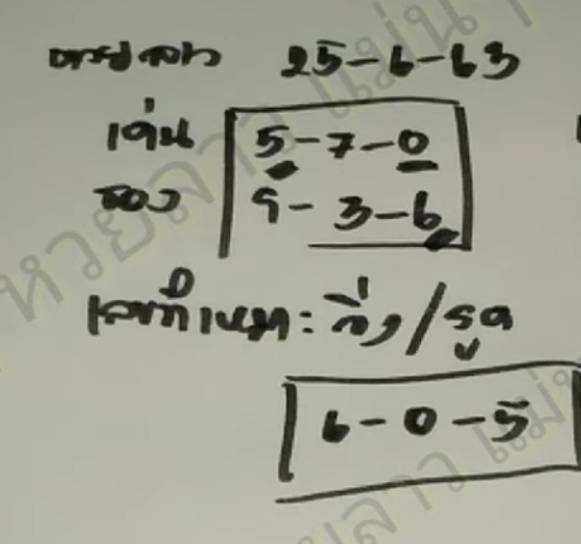 หวยลาว 25-6-63
เด่น 5-7-0
รอง 9-3-6
เลขที่เหมา: วิ่ง/รูด
6-0-5
หวยลาว แม่น